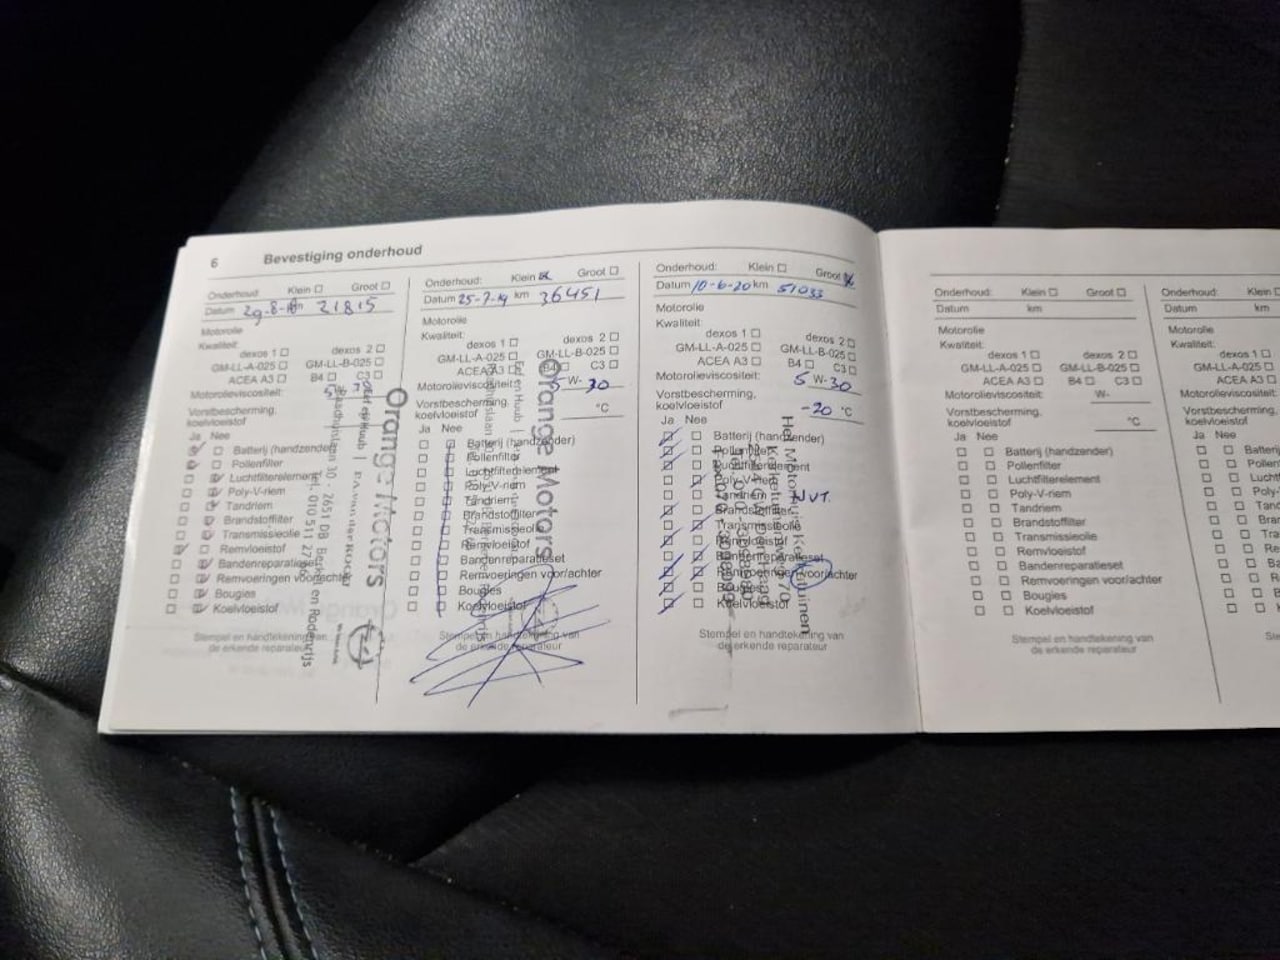 6 Bevestiging onderhoud
Onderhoud: Klein Groot
Datum 29-8-18 21815
Motorolie
Kwaliteit:
dexos 1 dexos 2
GM-LL-A-025 GM-LL-B-025
ACEA A3 B4 C3
Motorolieviscositeit:
Vorstbescherming,
koelvloeistof
Ja Nee
Batterij (handzender)
Pollenfilter
Luchtfilterelement
Poly-V-riem
Tandriem
Brandstoffilter
Transmissieolie
Remvloeistof
Bandenreparatieset
Remvoeringen voor/achter
Bougies
Koelvloeistof
Stempel en handtekening van
de erkende reparateur
Orange Motors
2651 DB Berkel en Rodenrijs
Tel. 010 511
Onderhoud: Klein Groot
Datum 25-7-19 km 36451
Motorolie
Kwaliteit:
dexos 1 dexos 2
GM-LL-A-025 GM-LL-B-025
ACEA A3 B4 C3
Motorolieviscositeit: 5 W- 30
Vorstbescherming,
koelvloeistof °C
Ja Nee
Batterij (handzender)
Pollenfilter
Luchtfilterelement
Poly-V-riem
Tandriem
Brandstoffilter
Transmissieolie
Remvloeistof
Bandenreparatieset
Remvoeringen voor/achter
Bougies
Koelvloeistof
Stempel en handtekening van
de erkende reparateur
Orange Motors
Onderhoud: Klein Groot
Datum 10-6-20 km 51033
Motorolie
Kwaliteit:
dexos 1 dexos 2
GM-LL-A-025 GM-LL-B-025
ACEA A3 B4 C3
Motorolieviscositeit: 5 W- 30
Vorstbescherming,
koelvloeistof -20 °C
Ja Nee
Batterij (handzender)
Pollenfilter
Luchtfilterelement
Poly-V-riem
Tandriem NVT
Brandstoffilter
Transmissieolie
Remvloeistof
Bandenreparatieset
Remvoeringen voor/achter
Bougies
Koelvloeistof
Stempel en handtekening van
de erkende reparateur
Onderhoud: Klein Groot
Datum km
Motorolie
Kwaliteit:
dexos 1 dexos 2
GM-LL-A-025 GM-LL-B-025
ACEA A3 B4 C3
Motorolieviscositeit: W-
Vorstbescherming,
koelvloeistof °C
Ja Nee
Batterij (handzender)
Pollenfilter
Luchtfilterelement
Poly-V-riem
Tandriem
Brandstoffilter
Transmissieolie
Remvloeistof
Bandenreparatieset
Remvoeringen voor/achter
Bougies
Koelvloeistof
Stempel en handtekening van
de erkende reparateur
Onderhoud: Klein
Datum km
Motorolie
Kwaliteit:
dexos 1
GM-LL-A-025
ACEA A3
Vorstbescherming,
koelvloeistof
Ja Nee